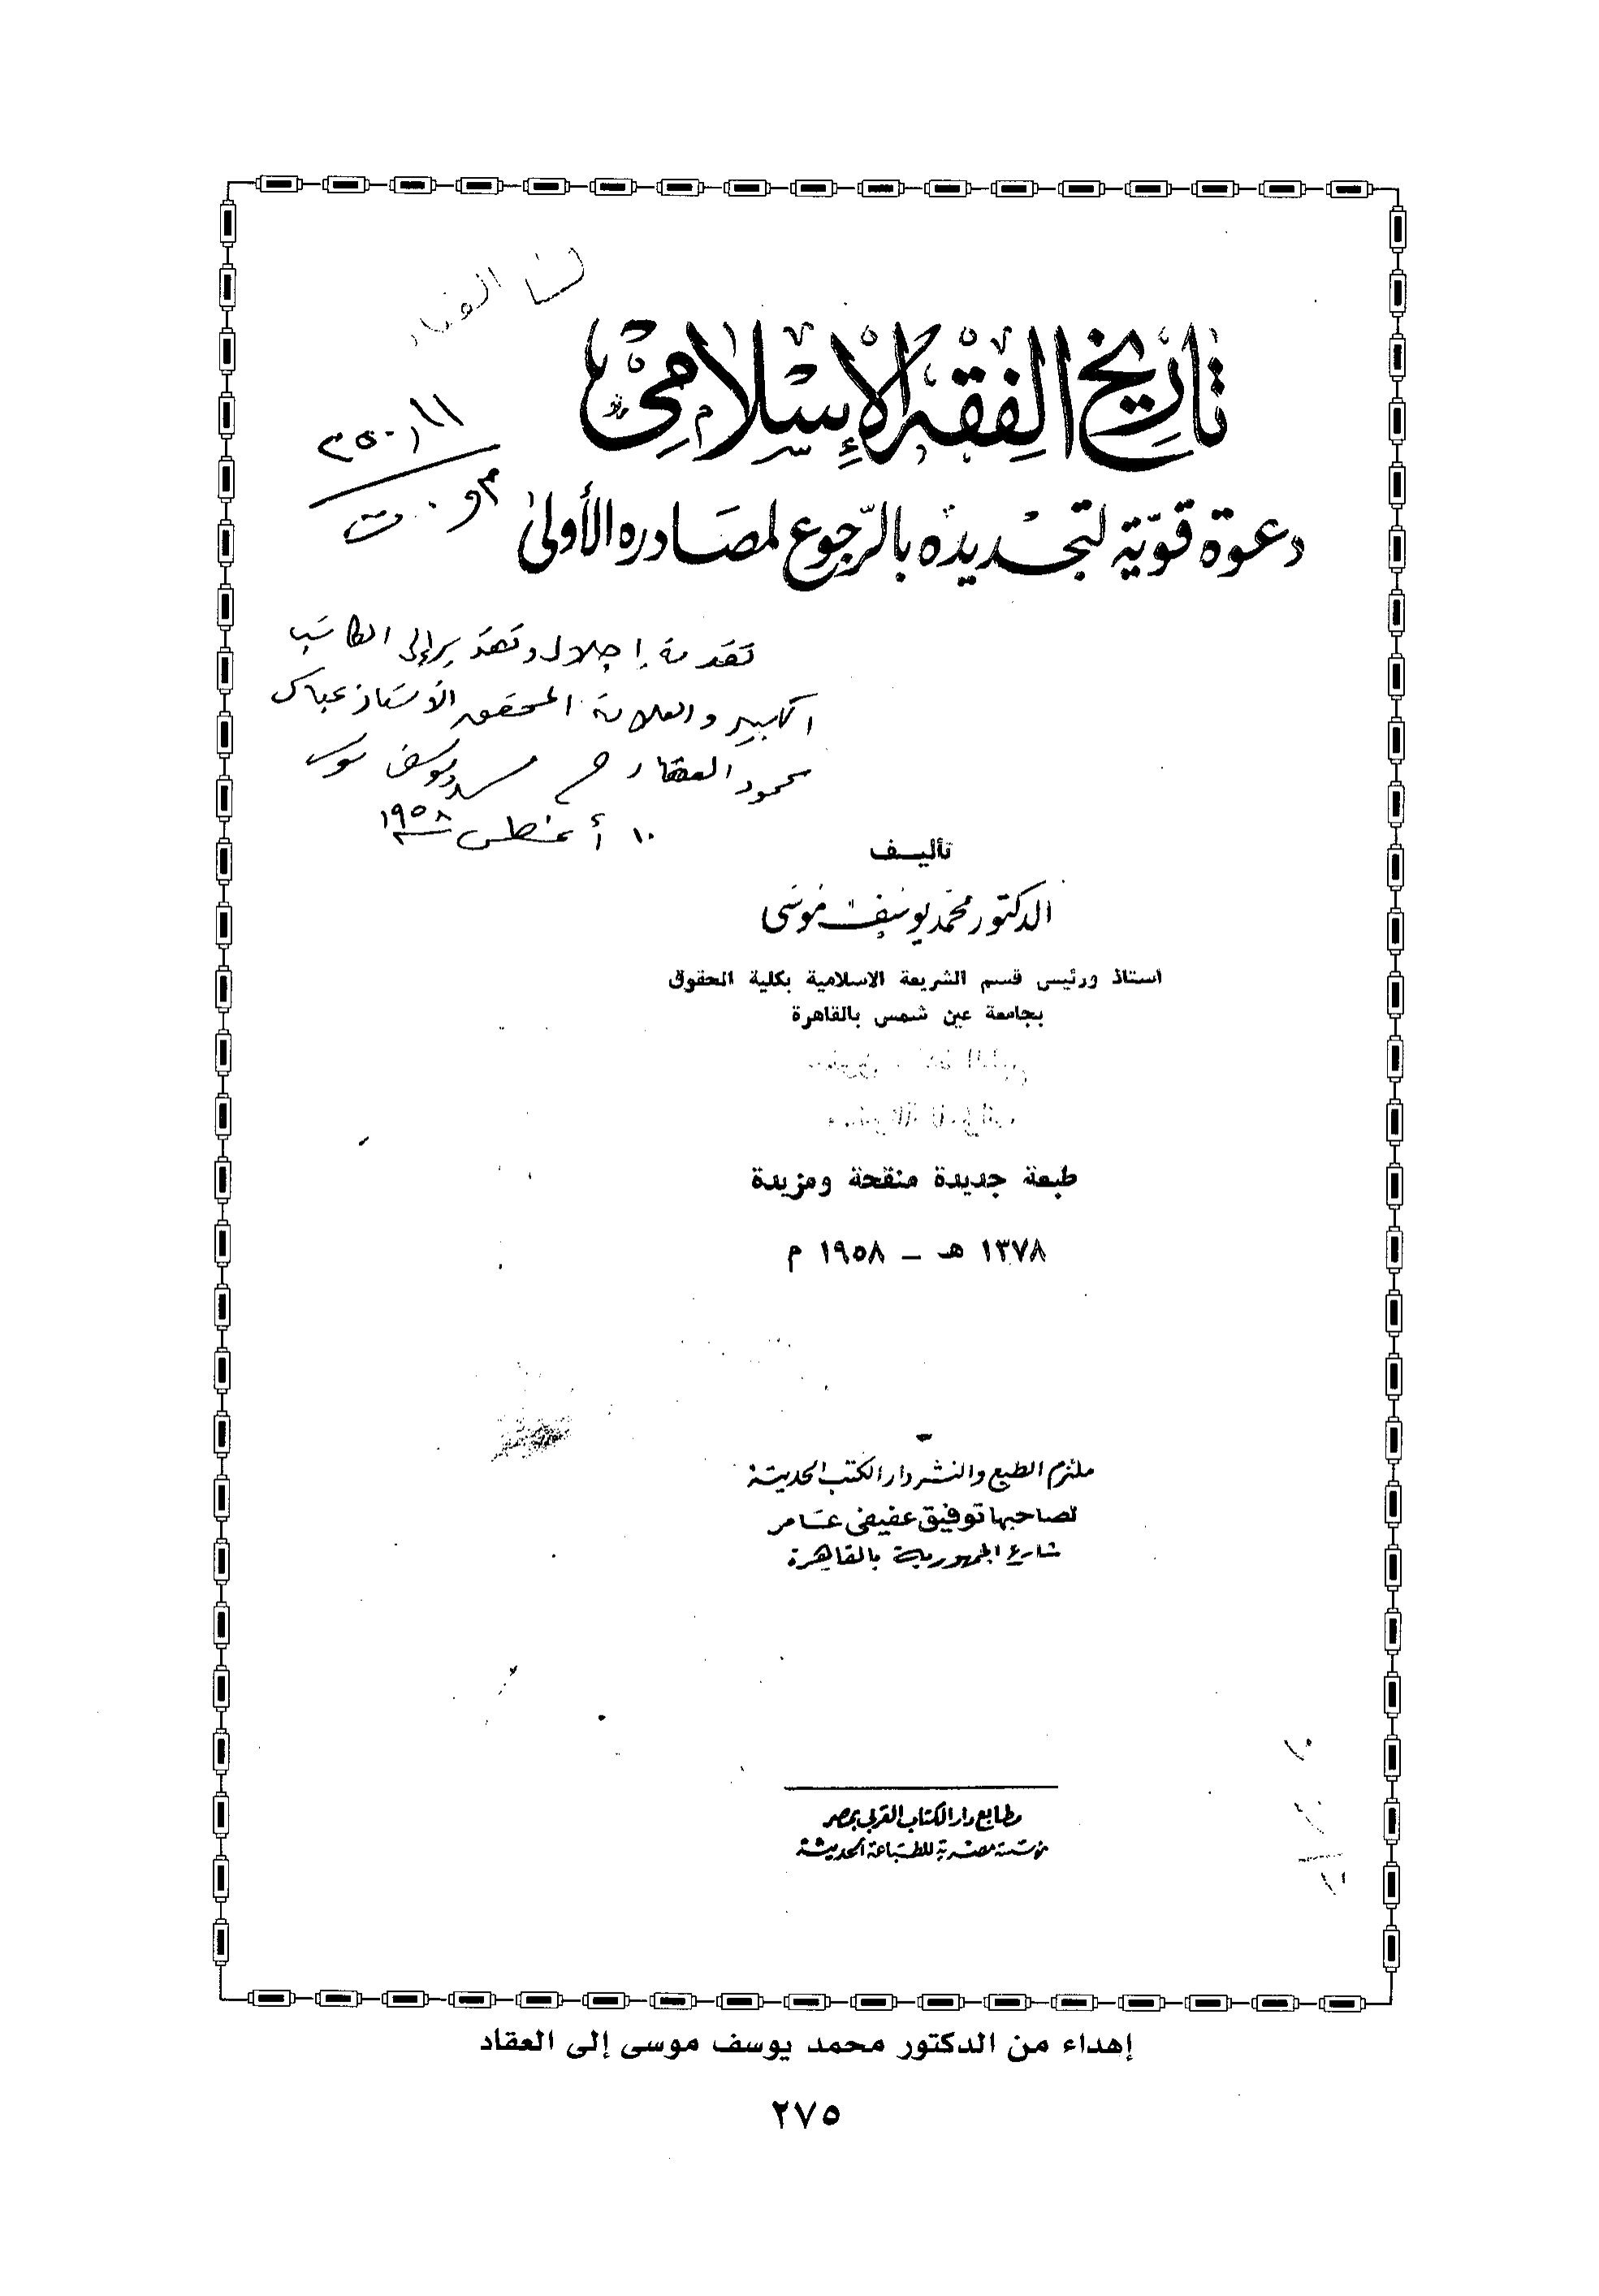 تاريخ الفقه الإسلامي
دعوة قوية لتجديده بالرجوع لمصادره الأولى
تقدمة إجلال وتقدير إلى الكاتب
الكبير والعلامة المحقق الأستاذ عباس
محمود العقاد محمد يوسف موسى
١٠ أغسطس ١٩٥٨
تأليف
الدكتور محمد يوسف موسى
استاذ ورئيس قسم الشريعة الاسلامية بكلية الحقوق
بجامعة عين شمس بالقاهرة
طبعة جديدة منقحة ومزيدة
١٣٧٨ هـ - ١٩٥٨ م
ملتزم الطبع والنشر دار الكتب الحديثة
لصاحبها توفيق عفيفى عامر
شارع الجمهورية بالقاهرة
مطابع دار الكتاب العربي بمصر
مؤسسة مصرية للطباعة الحديثة
إهداء من الدكتور محمد يوسف موسى إلى العقاد
٢٧٥